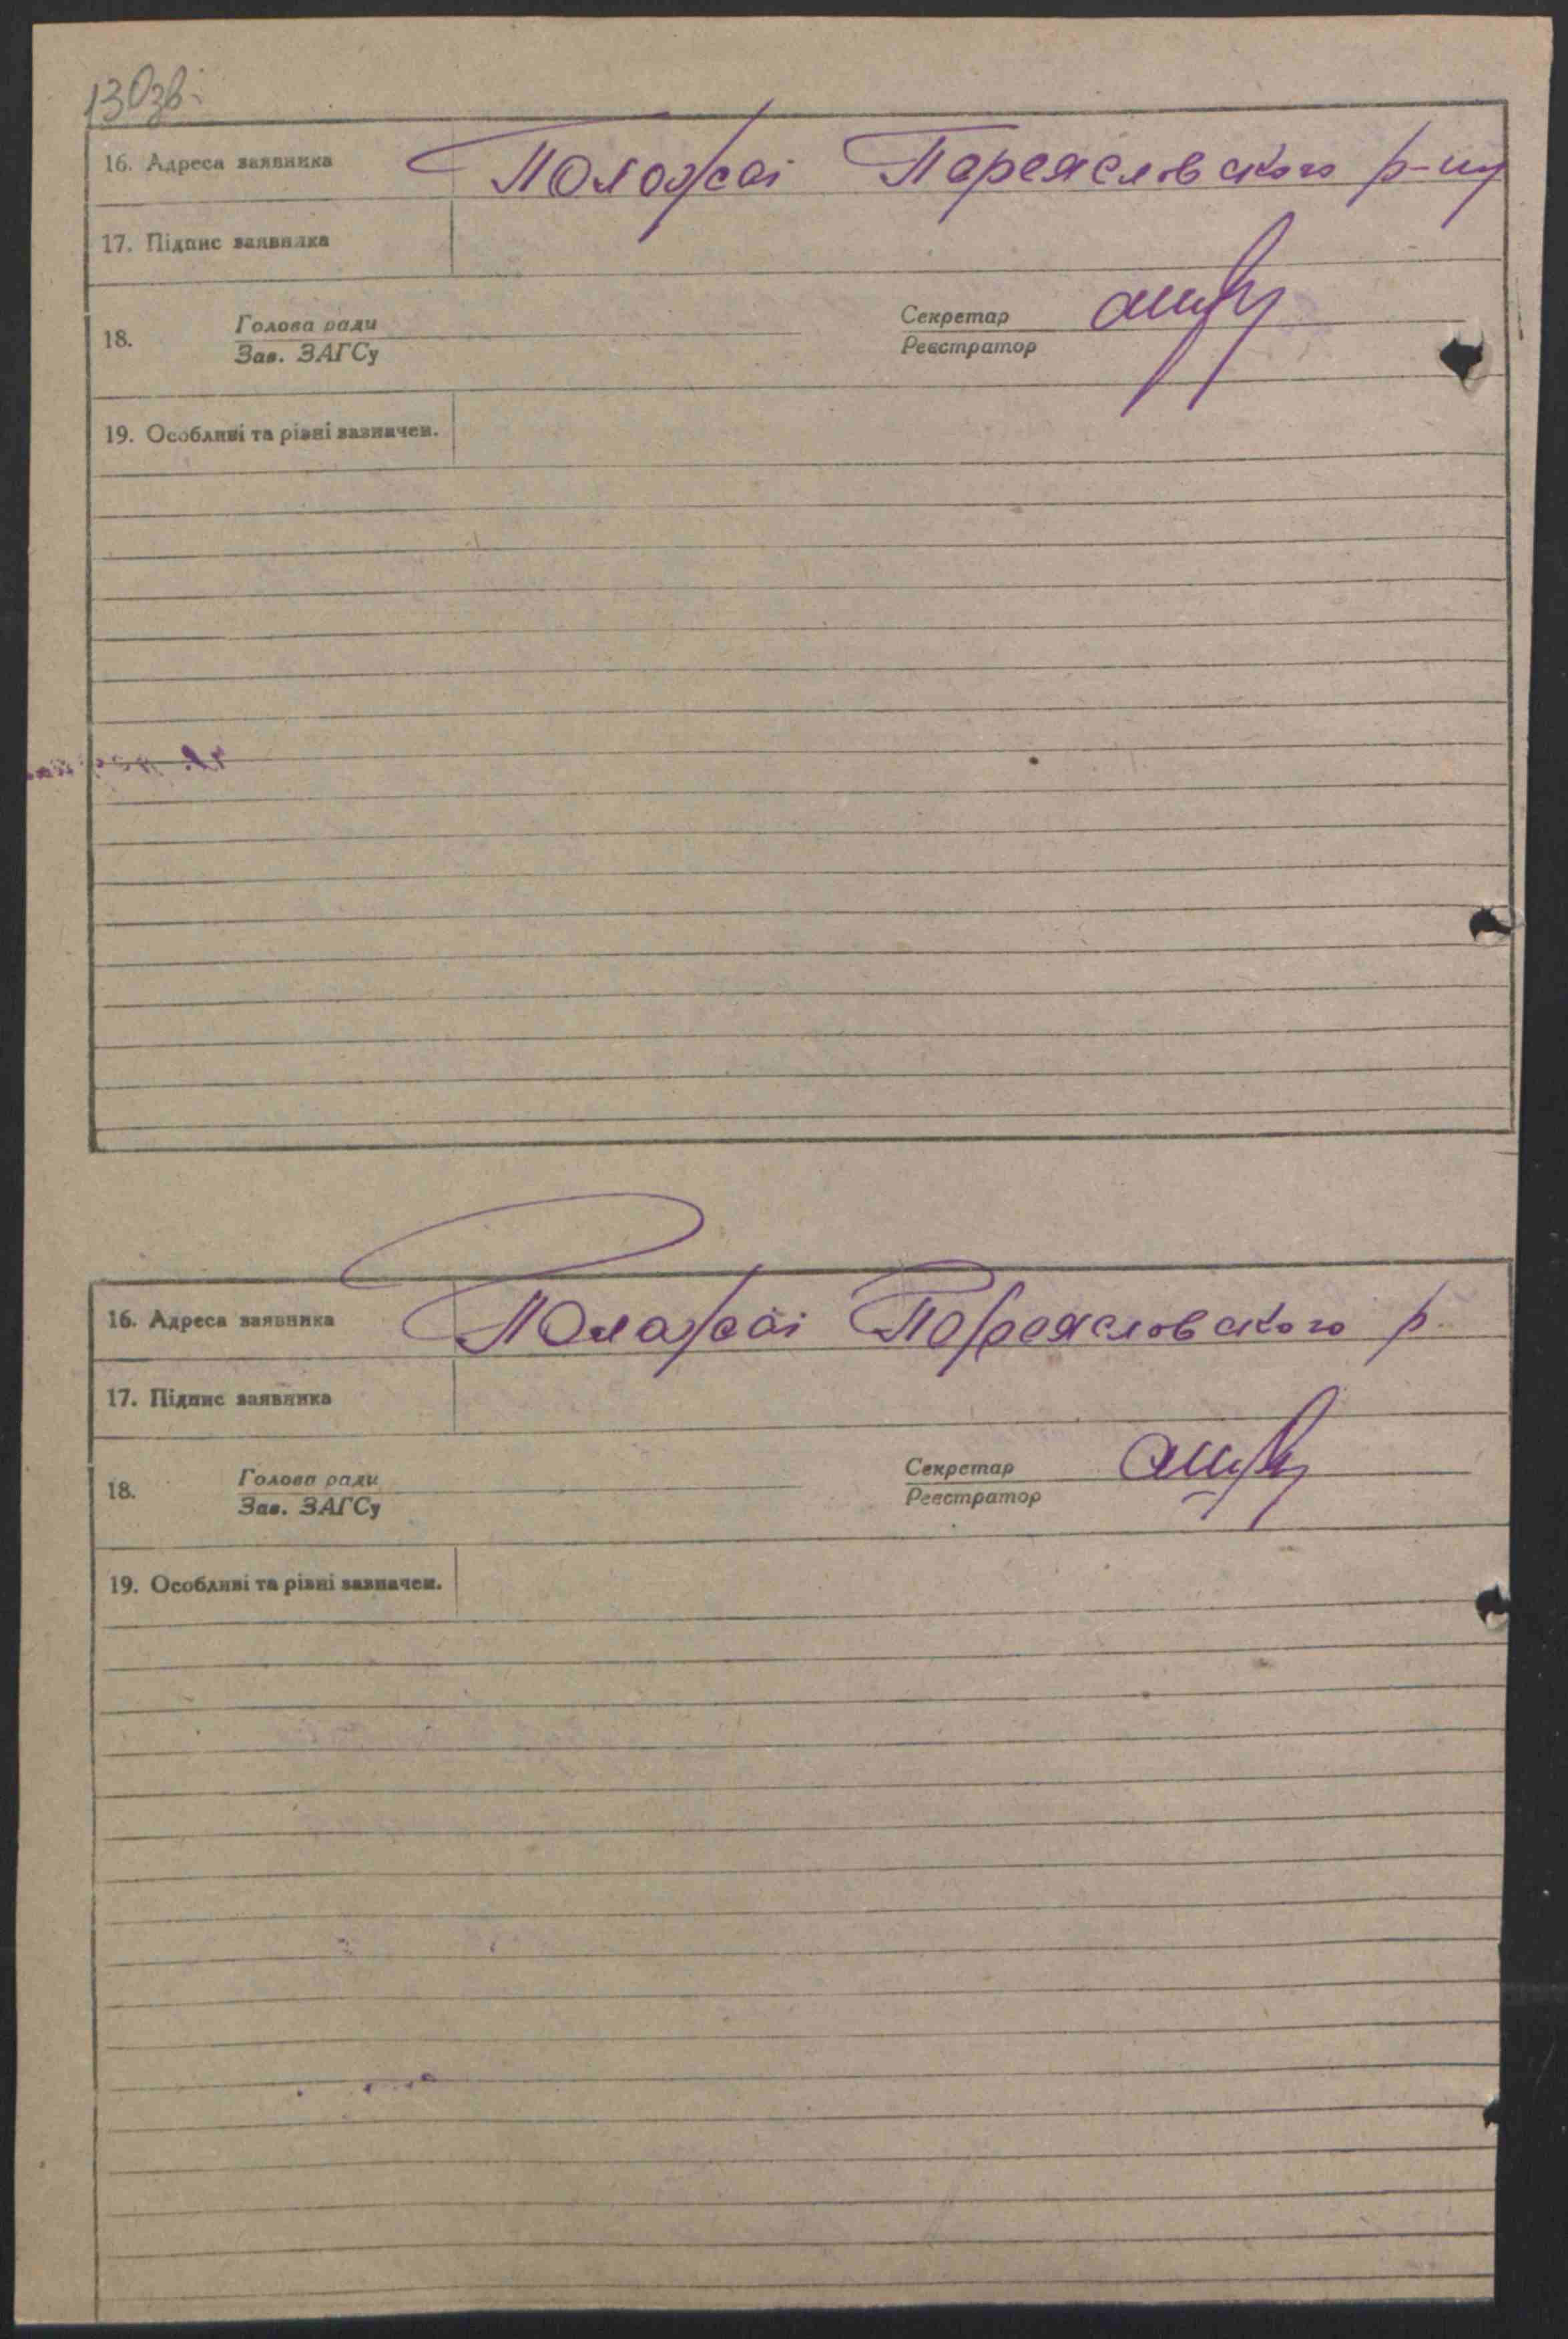 130зв.
16. Адреса заявника Положаі Пареясловского р-ну
17. Підпис заявника
18. Голова ради Секретар
Зав. ЗАГСу Реєстратор
19. Особливі та різні зазначен.
16. Адреса заявника Положаі Пореясловского р.
17. Підпис заявника
18. Голова ради Секретар
Зав. ЗАГСу Реєстратор
19. Особливі та різні зазначен.